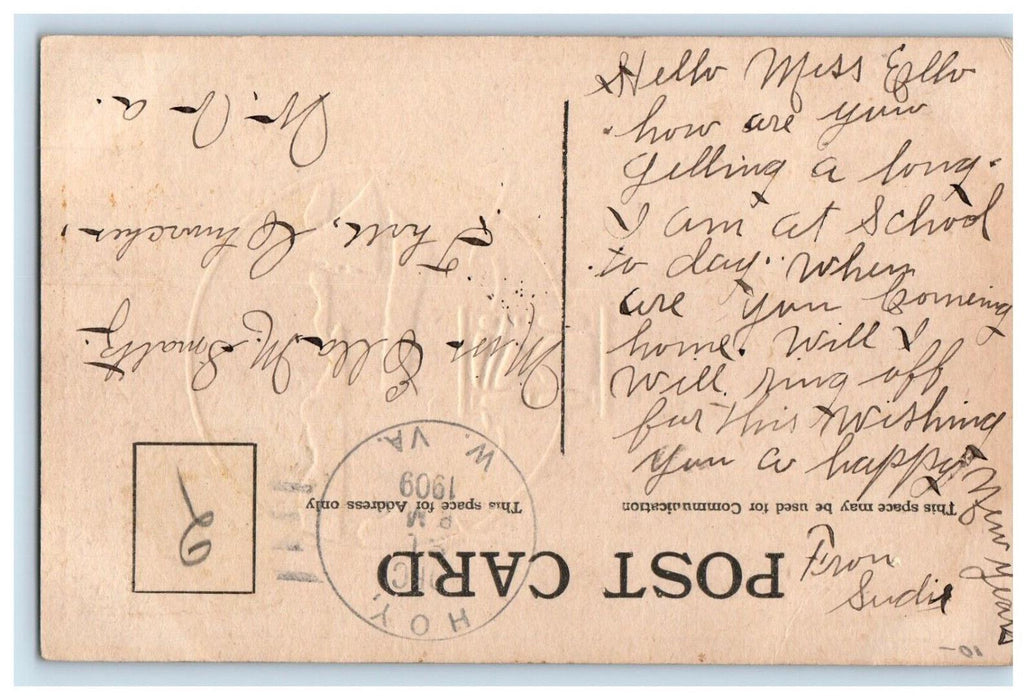 Hello Miss Ella
how are you
getting a long.
I am at School
to day. When
are you Comeing
home. Will I
will ring off
for this Wishing
you a happy
New Years
From
Sudie
POST CARD
This space may be used for Communication
This space for Address only
HOY.
DEC
PM
1909
W. VA.
Miss Ella M. Smaltz.
Churches,
W. Va.
2
10-